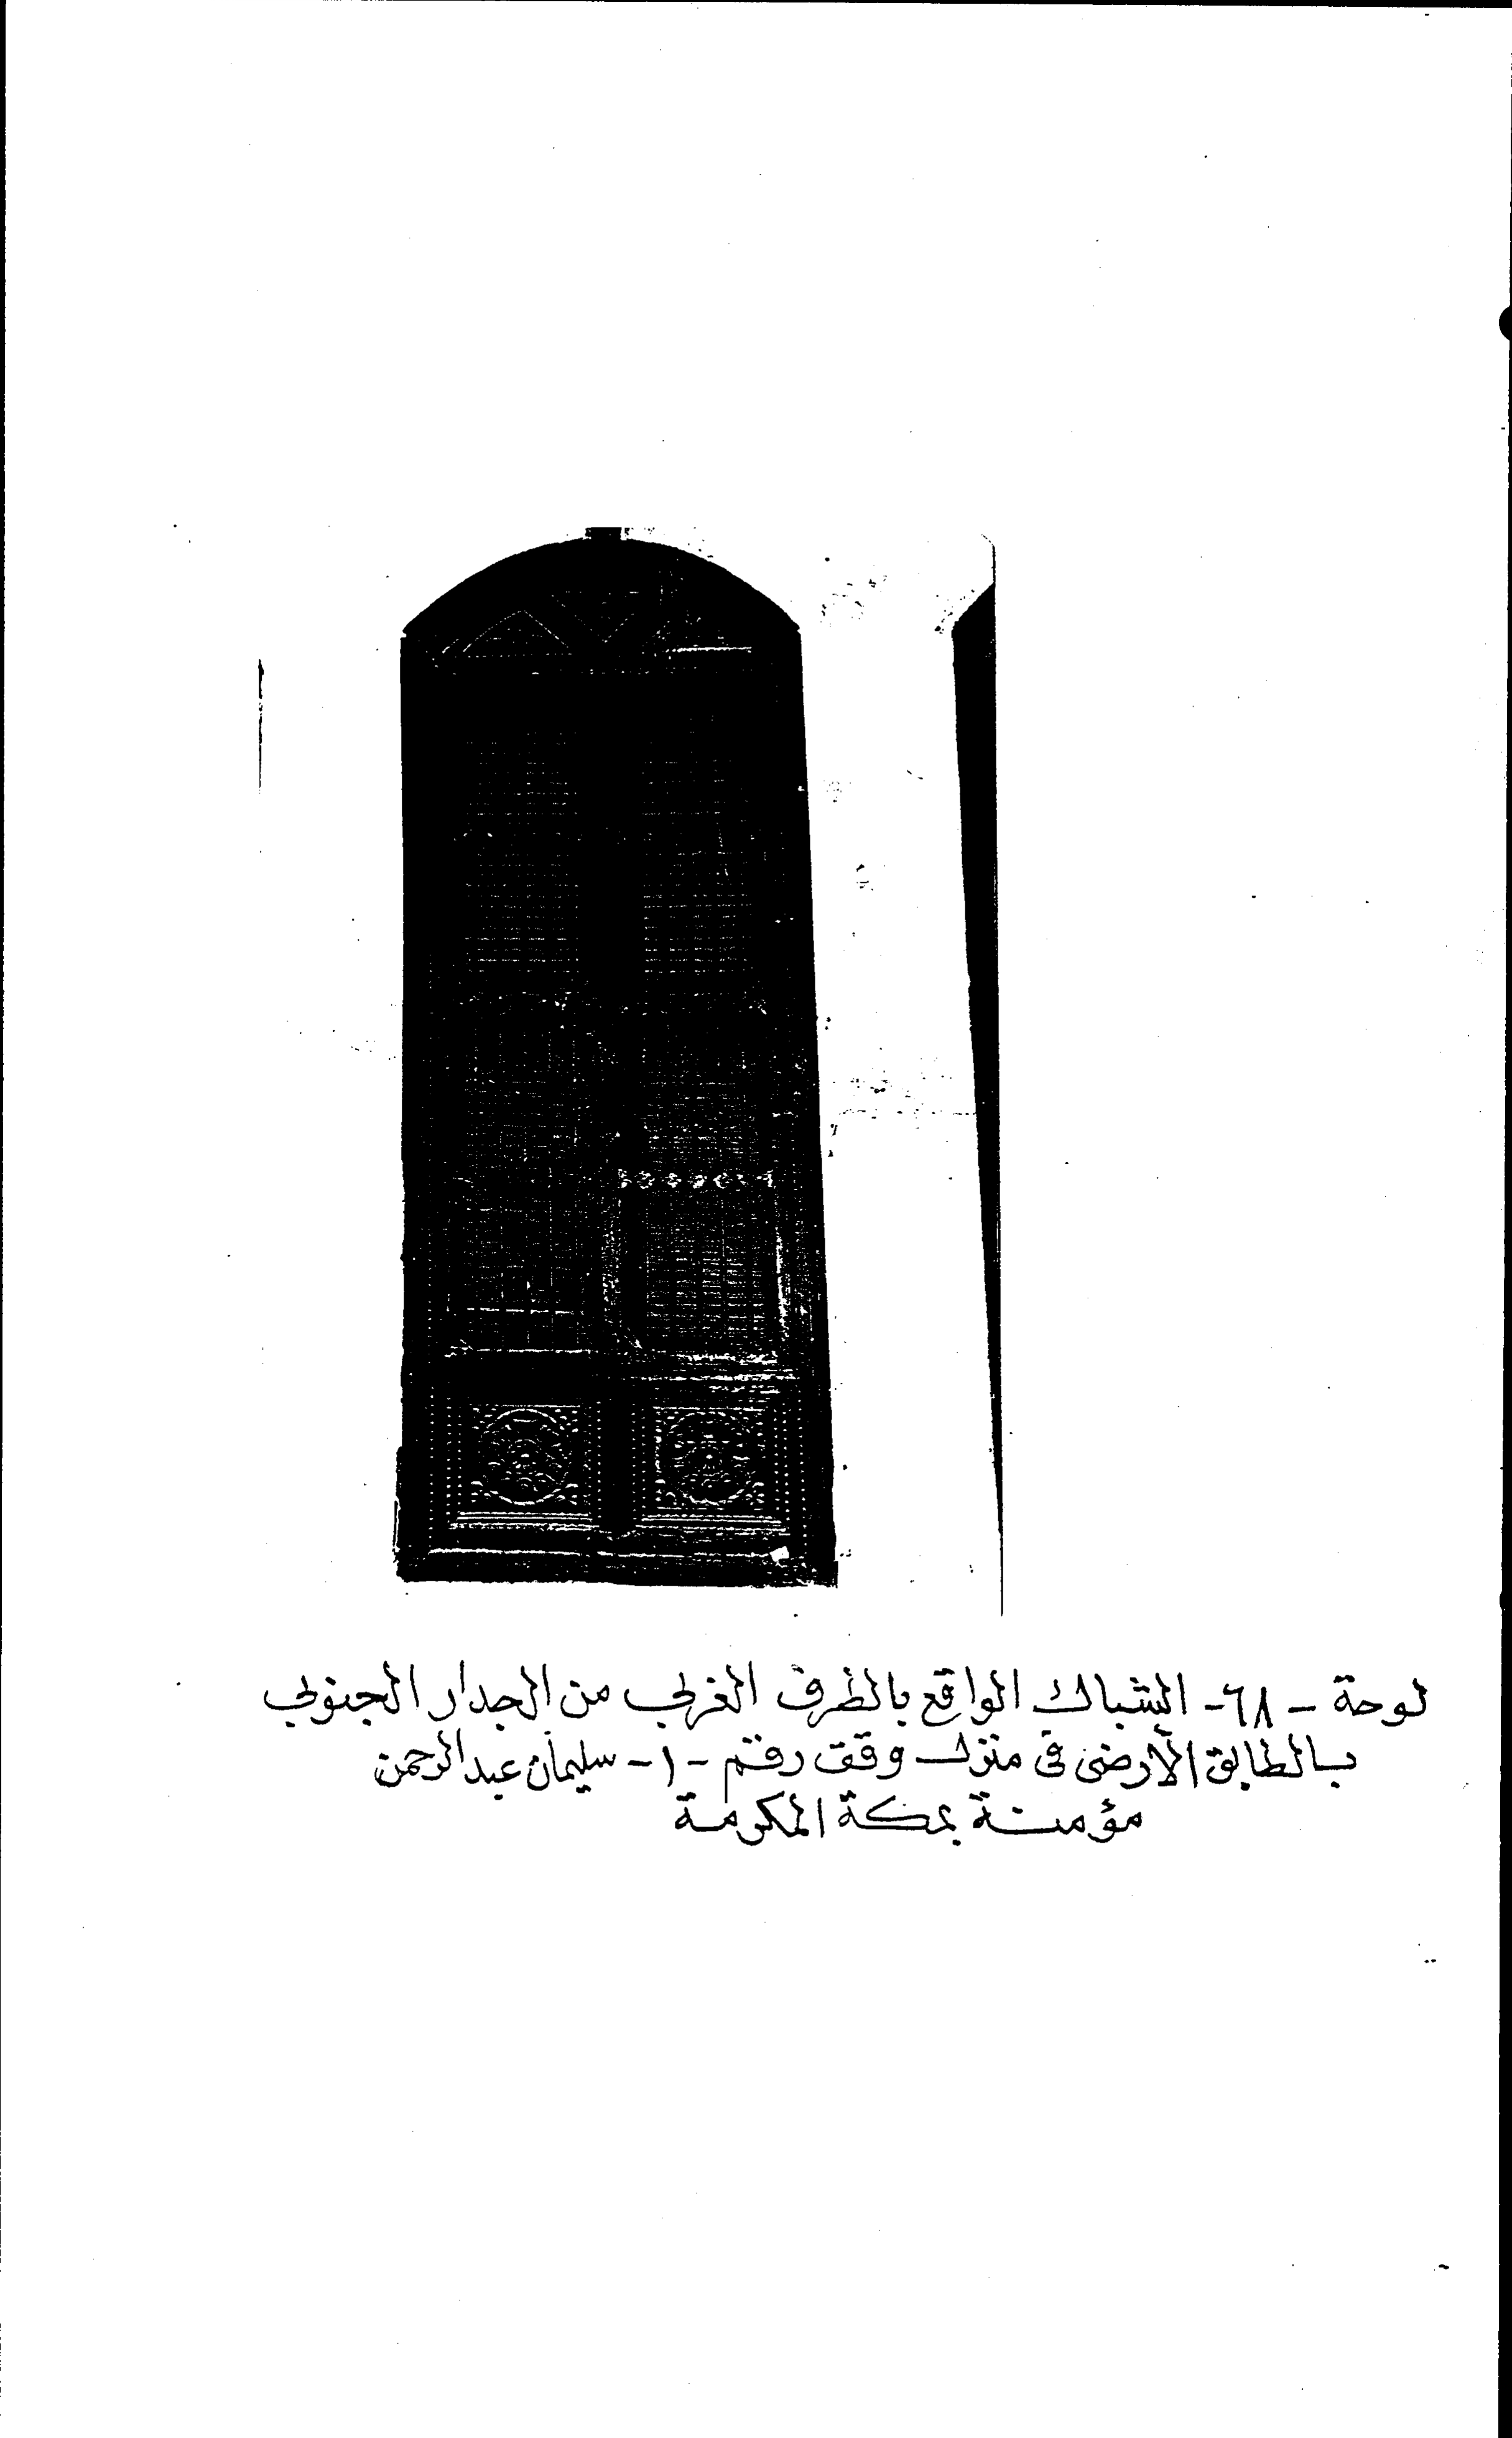 لوحة - ٦٨- الشباك الواقع بالطرف الغربي من الجدار الجنوبي
بالطابق الأرضى فى منزل وقف رقم - ١ - سليمان عبدالرحمن
مؤمنة بمكة المكرمة